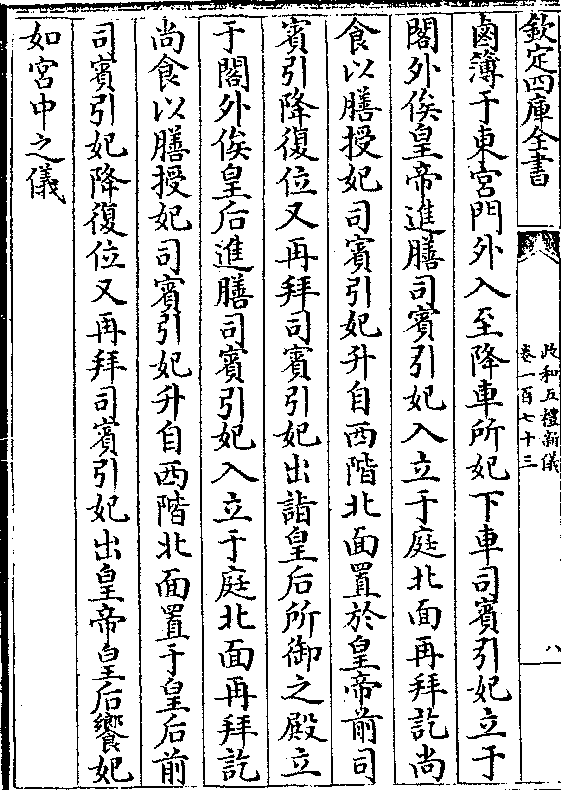 欽定四庫全書
政和五禮新儀
卷一百七十三
八
鹵簿于東宮門外入至降車所妃下車司賓引妃立于
閤外俟皇帝進膳司賓引妃入立于庭北面再拜訖尚
食以膳授妃司賓引妃升自西階北面置於皇帝前司
賓引降復位又再拜司賓引妃出詣皇后所御之殿立
于閤外俟皇后進膳司賓引妃入立于庭北面再拜訖
尚食以膳授妃司賓引妃升自西階北面置于皇后前
司賓引妃降復位又再拜司賓引妃出皇帝皇后饗妃
如宮中之儀